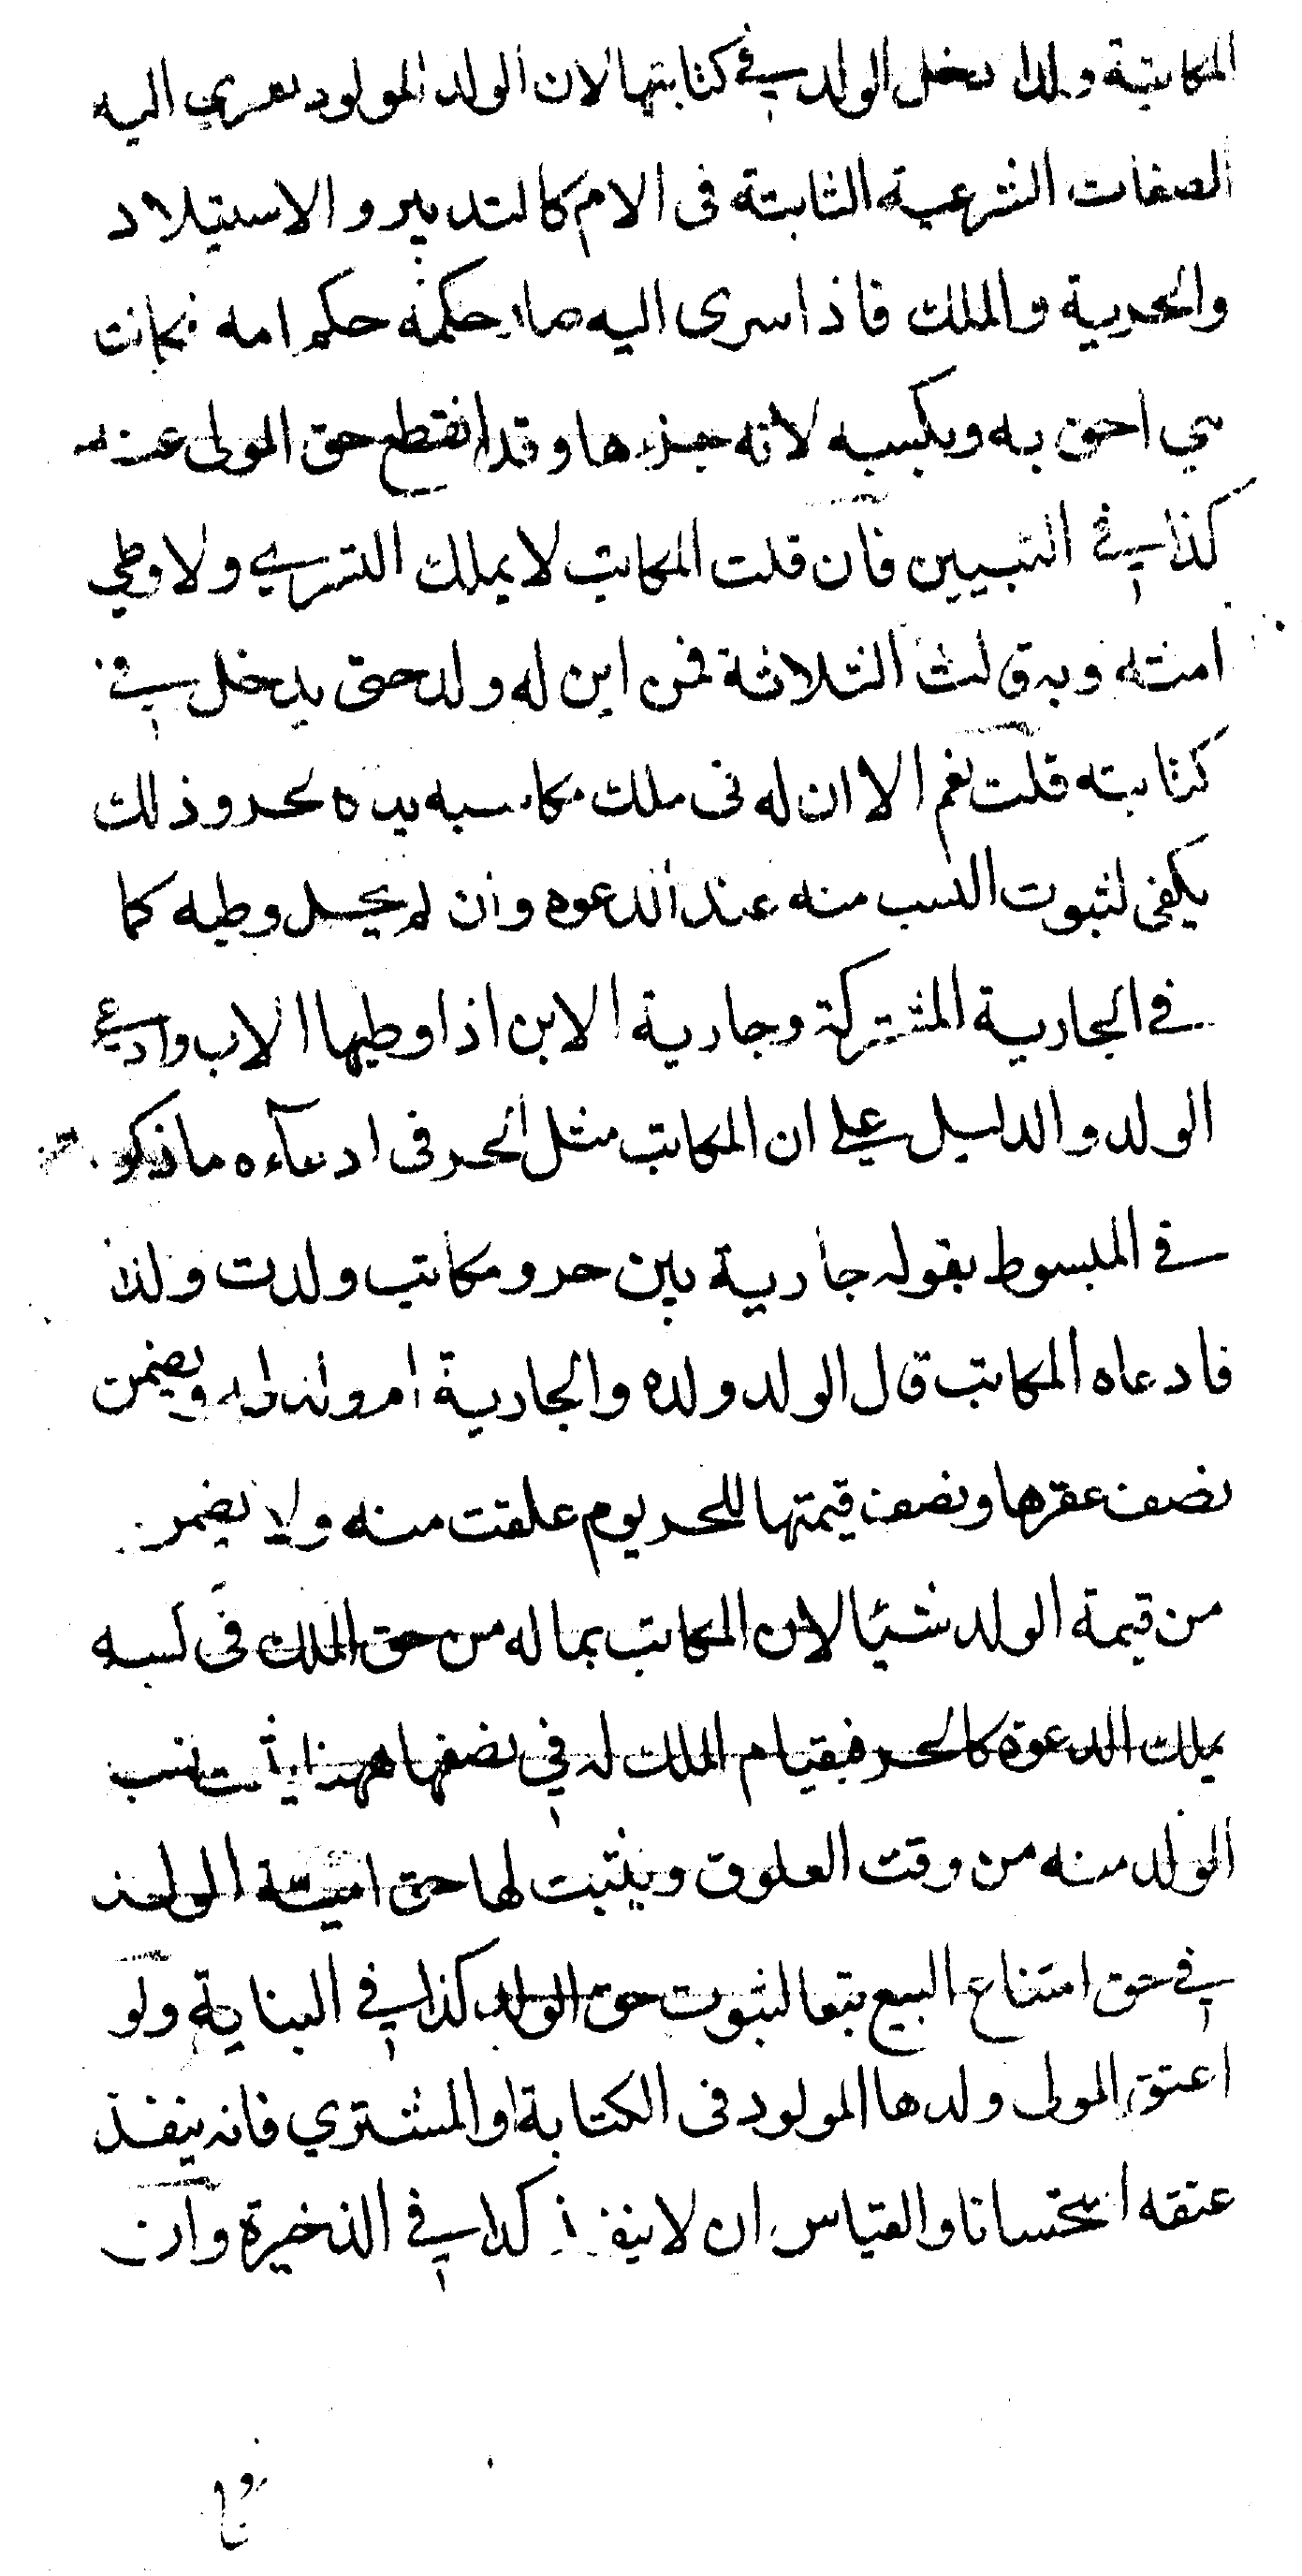 المكاتبة ولدا دخل الولد في كتابتها لان الولد المولود يسري اليه
الصفات الشرعية الثابتة فى الام كالتدبير والاستيلاد
والحرية والملك فاذا سرى اليه صار حكمه حكم امه فكانت
هي احق به وبكسبه لانه جزءها وقد انقطع حق المولى عنه
كذا في التبيين فان قلت المكاتب لا يملك التسري ولا وطي
امته وبه قالت الثلاثة فمن اين له ولد حتى يدخل في
كتابته قلت نعم الا ان له فى ملك مكاسبه يده كحر وذلك
يكفى لثبوت النسب منه عند الدعوه وان لم يحل وطيه كما
في الجارية المشتركة وجارية الابن اذا وطيها الاب وادعى
الولد والدليل على ان المكاتب مثل الحر فى ادعآءه ما ذكر
في المبسوط بقوله جارية بين حر ومكاتب ولدت ولدا
فادعاه المكاتب قال الولد ولده والجارية ام ولد له ويضمن
نصف عقرها ونصف قيمتها للحر يوم علقت منه ولا يضمن
من قيمة الولد شيئا لان المكاتب بماله من حق الملك فى كسبه
يملك الدعوة كالحر فبقيام الملك له في نصفها ههنا يثبت نسب
الولد منه من وقت العلوق ويثبت لها حق امية الولد
في حق امتناع البيع تبعا لثبوت حق الولد كذا في البناية ولو
اعتق المولى ولدها المولود فى الكتابة او المشترى فانه ينفذ
عتقه استحسانا والقياس ان لا ينفذ كذا في الذخيرة وان